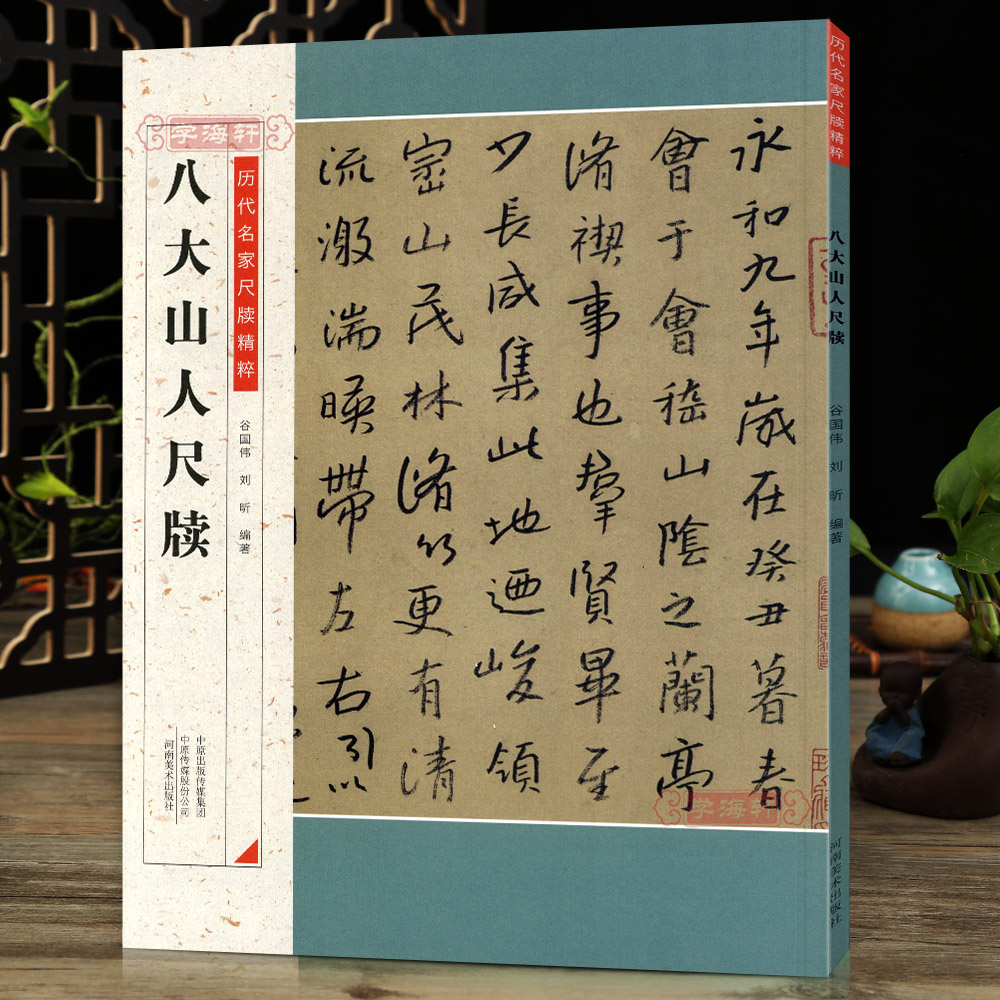 学海轩
历代名家尺牍精粹
八大山人尺牍
谷国伟 刘昕 编著
中原出版传媒集团
中原传媒股份公司
河南美术出版社
永和九年歲在癸丑暮春
會于會嵇山陰之蘭亭
脩禊事也羣賢畢至
少長咸集此地迺峻領
崇山茂林脩竹更有清
流激湍暎帶左右引以
学海轩
历代名家尺牍精粹
八大山人尺牍
谷国伟 刘昕 编著
河南美术出版社